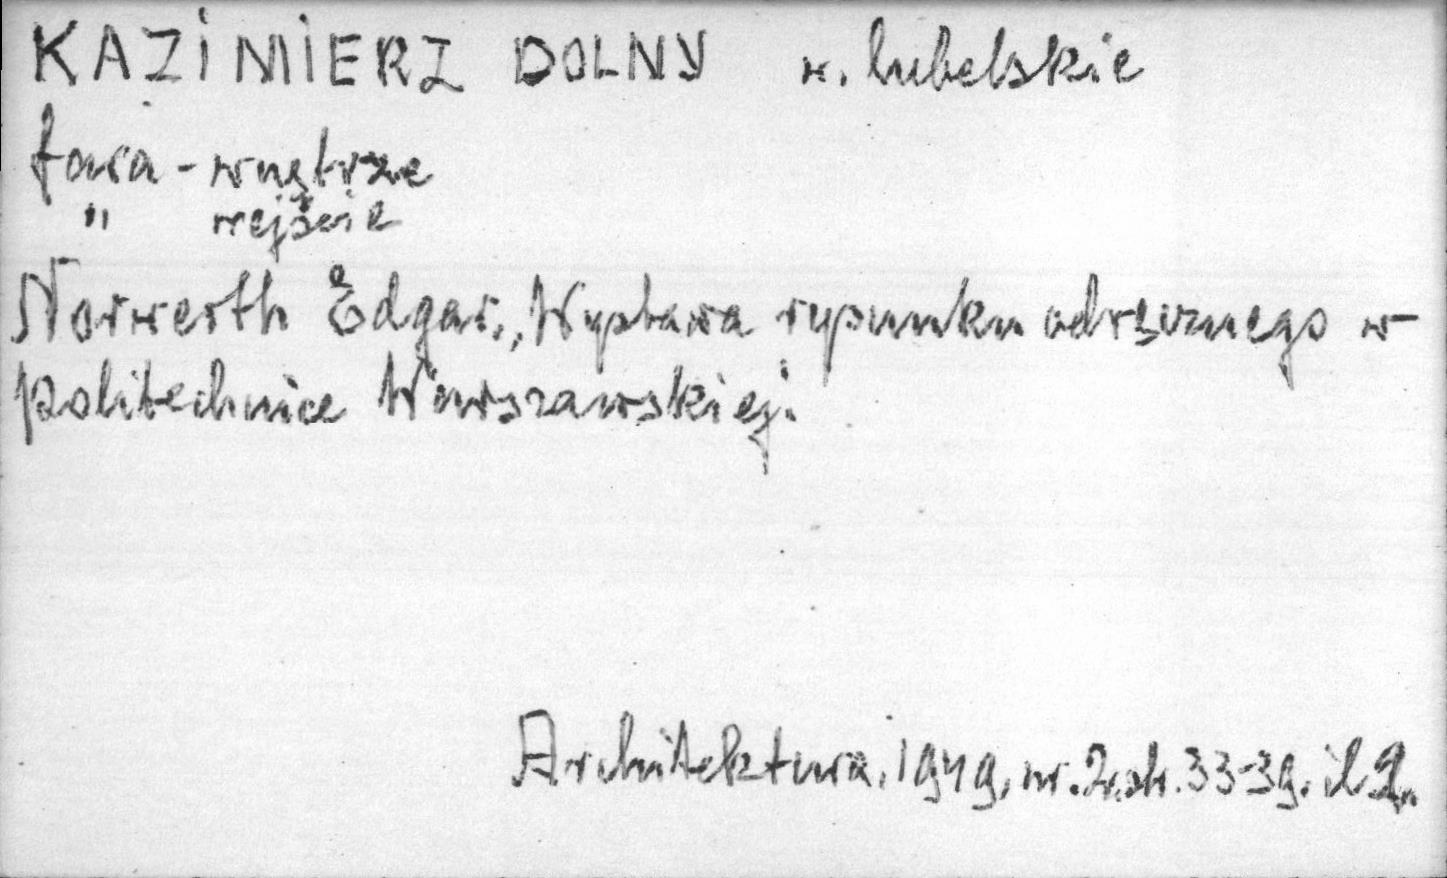 KAZIMIERZ DOLNY w. lubelskie
fara - wnętrze
" wejście
Norwerth Edgar, „Wystawa rysunku odręcznego w
politechnice Warszawskiej.
Architektura, 1949, nr. 2, str. 33-39. il 2.